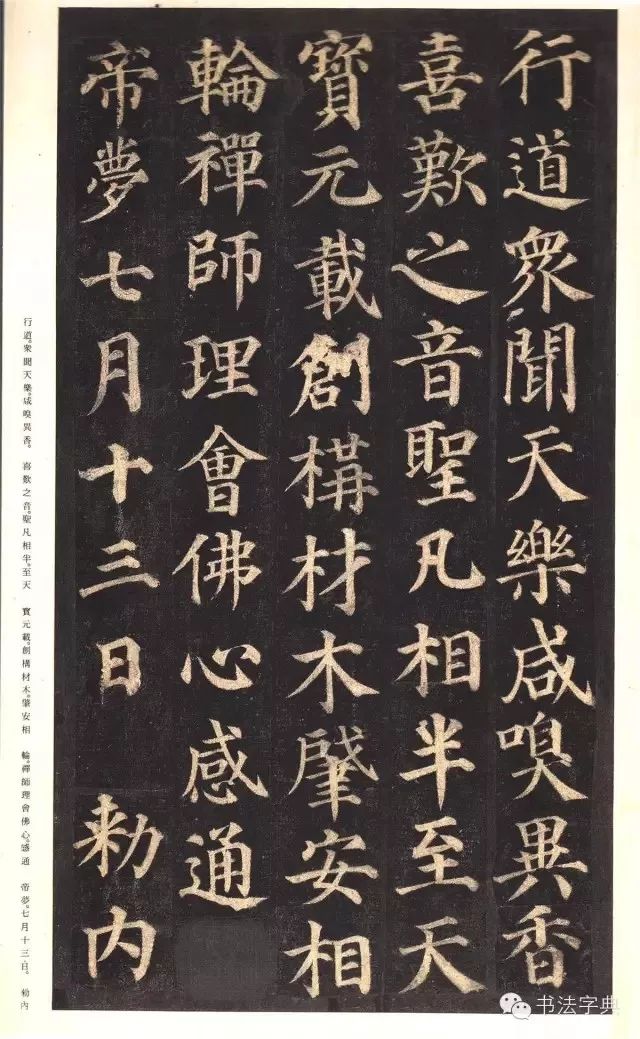 行道衆聞天樂咸嗅異香
喜歎之音聖凡相半至天
寶元載創構材木肇安相
輪禪師理會佛心感通
帝夢七月十三日 勑内
行道。衆聞天樂。咸嗅異香。 喜歎之音。聖凡相半。至天 寶元載。創構材木。肇安相 輪。禪師理會佛心。感通 帝夢。七月十三日。 勑内
书法字典